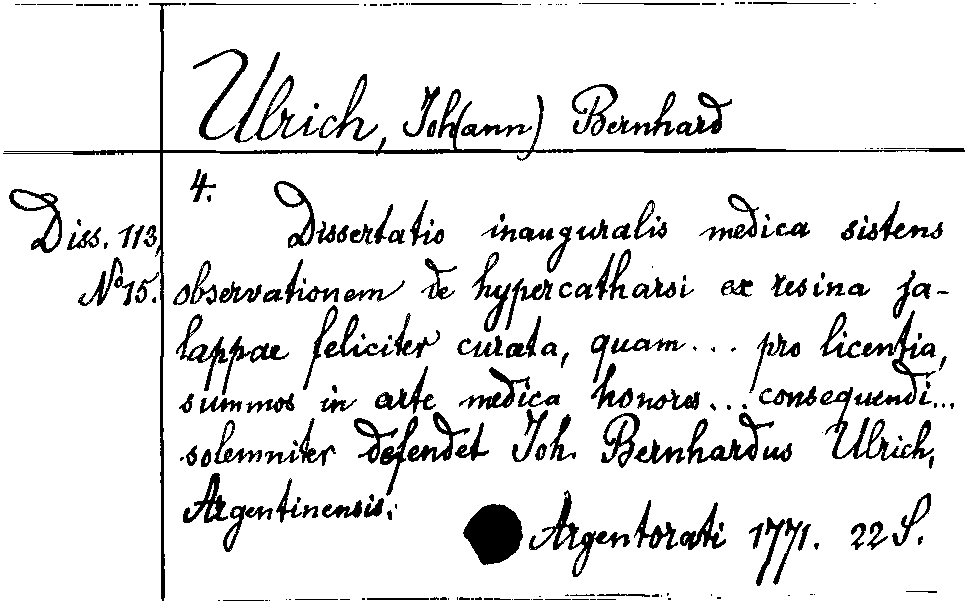 Ulrich, Joh(ann) Bernhard
4.
Diss. 113, Dissertatio inauguralis medica sistens
No 15. observationem de hypercatharsi ex resina ja-
lappae feliciter curata, quam... pro licentia,
summos in arte medica honores... consequendi...
solemniter defendet Joh. Bernhardus Ulrich,
Argentinensis.
Argentorati 1771. 22 S.